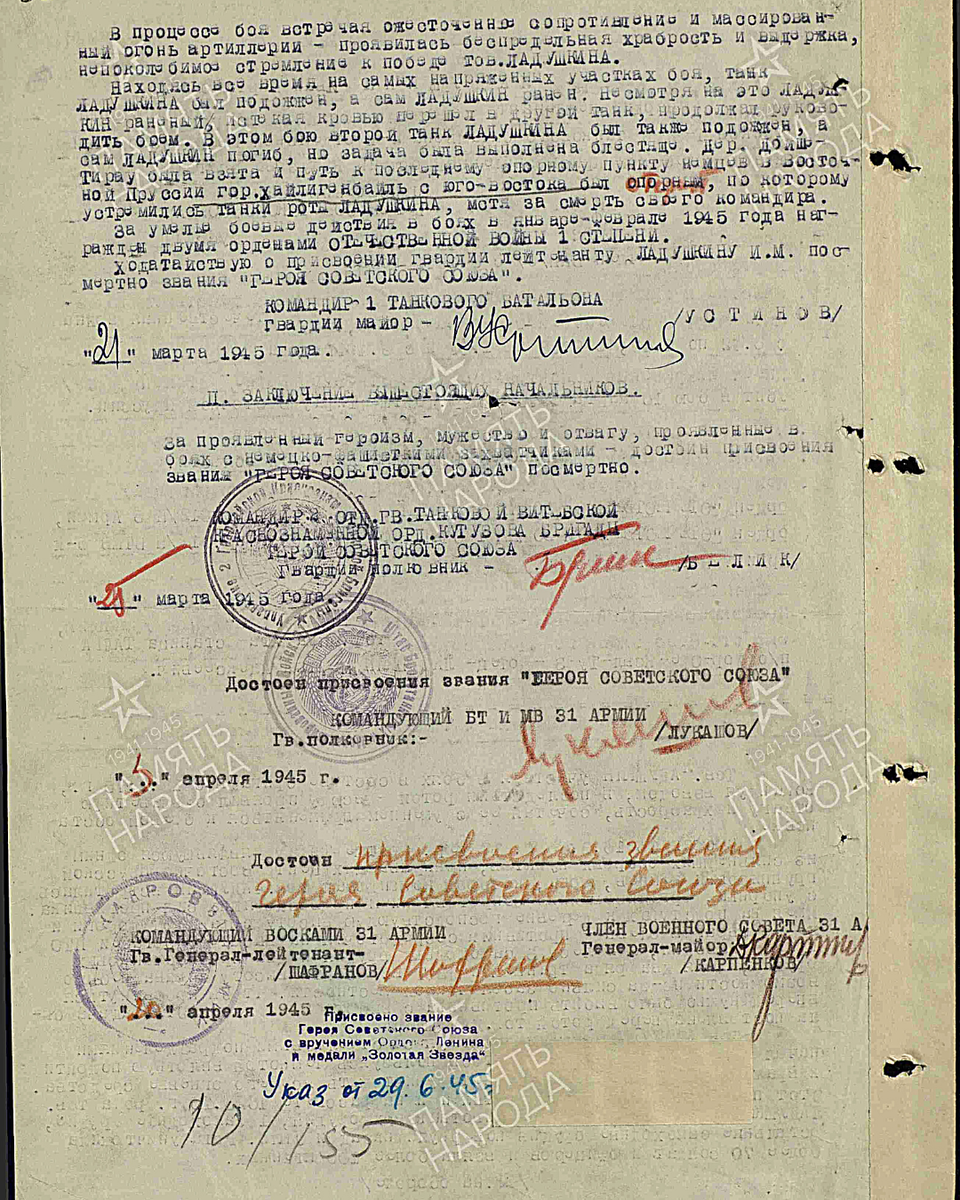 В процессе боя встречая ожесточенные сопротивление и массирован-
ный огонь артиллерии - проявилась беспредельная храбрость и выдержка,
непоколебимое стремление к победе тов.ЛАДУШКИНА.
Находясь все время на самых напряженных участках боя, танк
ЛАДУШКИНА был подожжен, а сам ЛАДУШКИН ранен. Несмотря на это ЛАДУШ-
КИН раненый, истекая кровью перешел в другой танк, продолжал руково-
дить боем. В этом бою второй танк ЛАДУШКИНА был также подожжен, а
сам ЛАДУШКИН погиб, но задача была выполнена блестяще. Дер. Дойш-
Тирау была взята и путь к последнему опорному пункту немцев в Восточ-
ной Пруссии гор.Хайлигенбайль с юго-востока был опорный, по которому
устремились танки роты ЛАДУШКИНА, мстя за смерть своего командира.
За умелые боевые действия в боях в январе-феврале 1945 года наг-
ражден двумя орденами ОТЕЧЕСТВЕННОЙ ВОЙНЫ 1 СТЕПЕНИ.
Ходатайствую о присвоении гвардии лейтенанту ЛАДУШКИНУ И.М. пос-
мертно звания "ГЕРОЯ СОВЕТСКОГО СОЮЗА".
КОМАНДИР 1 ТАНКОВОГО БАТАЛЬОНА
гвардии майор - /УСТИНОВ/
"21" марта 1945 года.
П. ЗАКЛЮЧЕНИЕ ВЫШЕСТОЯЩИХ НАЧАЛЬНИКОВ.
За проявленный героизм, мужество и отвагу, проявленные в
боях с немецко-фашисткими захватчиками - достоин присвоения
звания "ГЕРОЯ СОВЕТСКОГО СОЮЗА" посмертно.
КОМАНДИР 2 ОТД.ГВ.ТАНКОВОЙ ВИТЕБСКОЙ
КРАСНОЗНАМЕННОЙ ОРД.КУТУЗОВА БРИГАДЫ
ГЕРОЙ СОВЕТСКОГО СОЮЗА
Гвардии полковник - /БЕЛИК/
"21" марта 1945 года.
Достоен присвоения звания "ГЕРОЯ СОВЕТСКОГО СОЮЗА"
КОМАНДУЮЩИЙ БТ И МВ 31 АРМИИ
Гв.полковник:- /ЛУКАШОВ/
Лукашов
"5" апреля 1945 г.
Достоен присвоения звания
Героя Советского Союза
КОМАНДУЮЩИЙ ВОСКАМИ 31 АРМИИ ЧЛЕН ВОЕННОГО СОВЕТА 31 А
Гв.Генерал-лейтенант- Генерал-майор
/ШАФРАНОВ/ Шафранов /КАРПЕНКОВ
апреля 1945 г.
Присвоено звание
Героя Советского Союза
с вручением Ордена Ленина
и медали „Золотая Звезда“
Указ от 29.6.45г
10/155
ПАМЯТЬ НАРОДА
1941-1945